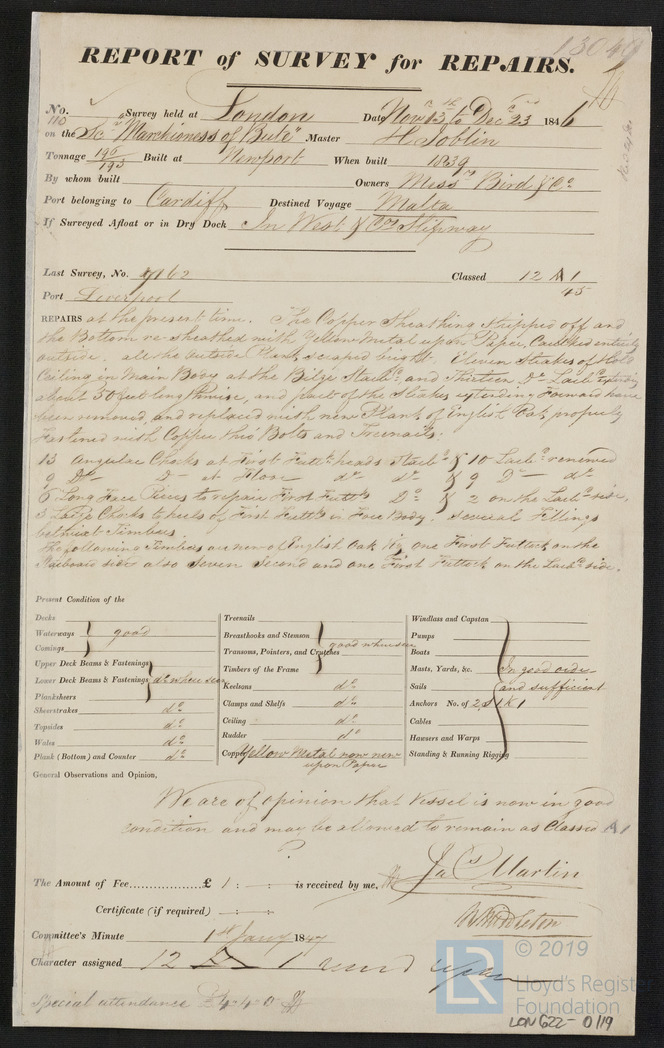 13049
REPORT of SURVEY for REPAIRS.
No. 110 Survey held at London Date Nov 13th to Decr 23rd 1846
on the Sc "Marchioness of Bute" Master H. Joblin
Tonnage 196/193 Built at Newport When built 1839
By whom built Owners Messrs Bird & Co
Port belonging to Cardiff Destined Voyage Malta
If Surveyed Afloat or in Dry Dock In West & Cos Slipway
Last Survey, No. 9162 Classed 12 A 1
Port Liverpool 45
REPAIRS at the present time. The Copper Sheathing Stripped off and
the Bottom re-sheathed with Yellow Metal upon Paper, Caulked entirely
outside. all the outside Plank scraped bright. Eleven Strakes of Hold
Ceiling in Main Body at the Bilge Starbd and Thirteen Do Larbd extending
about 30 feet lengthwise, and part of the Strakes extending Forward have
been removed, and replaced with new Plank of English Oak properly
Fastened with Copper thro' Bolts and Treenails.
13 Angular Chocks at First Futtk heads Starbd & 10 Larbd renewed
9 Do Do at Floor do do & 9 Do do
6 Long Face Pieces to repair First Futtks Do & 2 on the Larbd side.
3 Large Chocks to heels of First Futtks in Fore Body. Several Fillings
betwixt Timbers.
The following Timbers are new of English Oak Viz. one First Futtock on the
Starboard side also Seven Second and one First Futtock on the Larbd side.
Present Condition of the
Decks
Waterways good
Comings
Upper Deck Beams & Fastenings
Lower Deck Beams & Fastenings do where seen
Planksheers
Sheerstrakes do
Topsides do
Wales do
Plank (Bottom) and Counter do
Treenails
Breasthooks and Stemson good where seen
Transoms, Pointers, and Crutches
Timbers of the Frame
Keelsons do
Clamps and Shelfs do
Ceiling do
Rudder do
Copper Yellow Metal now new
upon Paper
Windlass and Capstan
Pumps
Boats
Masts, Yards, &c. In good order
Sails and sufficient
Anchors No. of 2 S 1 K 1
Cables
Hawsers and Warps
Standing & Running Rigging
General Observations and Opinion,
We are of opinion that Vessel is now in good
condition and may be allowed to remain as Classed A 1
The Amount of Fee £ 1 : - : - is received by me, Jas Martin
Certificate (if required) - : - : -
W Middleton
Committee's Minute 1st Jany 1847
Character assigned 12 A 1
Special attendance £4-4-0
© 2019
LR
Lloyd's Register
Foundation
LON 622-0119